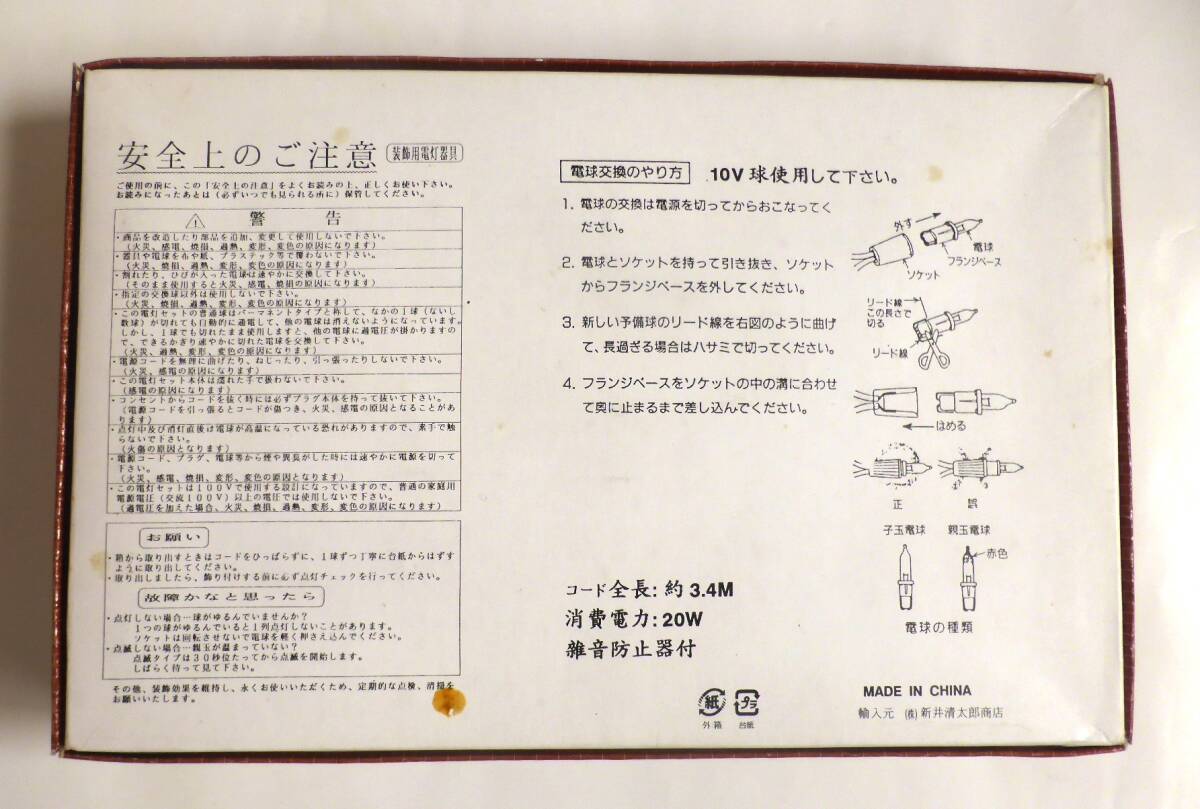 安全上のご注意 装飾用電灯器具
ご使用の前に、この「安全上の注意」をよくお読みの上、正しくお使い下さい。
お読みになったあとは(必ずいつでも見られる所に)保管してください。
警告
・商品を改造したり部品を追加、変更して使用しないで下さい。
(火災、感電、焼損、過熱、変形、変色の原因になります)
・器具や電球を布や紙、プラスチック等で覆わないで下さい。
(火災、焼損、過熱、変形、変色の原因になります)
・割れたり、ひびが入った電球は速やかに交換して下さい。
(そのまま使用すると火災、感電、焼損の原因になります)
・指定の交換球以外は使用しないで下さい。
(火災、焼損、過熱、変形、変色の原因になります)
・この電灯セットの普通球はパーマネントタイプと称して、なかの1球(ないし
数球)が切れても自動的に通電して、他の電球は消えないようになっています。
しかし、1球でも切れたまま使用しますと、他の電球に過電圧が掛かりますの
で、できるかぎり速やかに切れた電球を交換して下さい。
(火災、過熱、変形、変色の原因になります)
・電源コードを無理に曲げたり、ねじったり、引っ張ったりしないで下さい。
(火災、感電の原因になります)
・この電灯セット本体は濡れた手で扱わないで下さい。
(感電の原因になります)
・コンセントからコードを抜く時には必ずプラグ本体を持って抜いて下さい。
(電源コードを引っ張るとコードが傷つき、火災、感電の原因となることがあ
ります)
・点灯中及び消灯直後は電球が高温になっている恐れがありますので、素手で触
らないで下さい。
(火傷の原因となります)
・電源コード、プラグ、電球等から煙や異臭がした時には速やかに電源を切って
下さい。
(火災、感電、焼損、変形、変色の原因となります)
・この電灯セットは100Vで使用する設計になっていますので、普通の家庭用
電源電圧(交流100V)以上の電圧では使用しないで下さい。
(過電圧を加えた場合、火災、焼損、過熱、変形、変色の原因になります)
お願い
・箱から取り出すときはコードをひっぱらずに、1球ずつ丁寧に台紙からはずす
ように取り出してください。
・取り出しましたら、飾り付けする前に必ず点灯チェックを行ってください。
故障かなと思ったら
・点灯しない場合…球がゆるんでいませんか?
1つの球がゆるんでいると1列点灯しないことがあります。
ソケットは回転させないで電球を軽く押さえ込んでください。
・点滅しない場合…親玉が温まっていない?
点滅タイプは30秒位たってから点滅を開始します。
しばらく待って見て下さい。
その他、装飾効果を維持し、永くお使いいただくため、定期的な点検、清掃を
お願いいたします。
電球交換のやり方 10V球使用して下さい。
1. 電球の交換は電源を切ってからおこなってく
ださい。
2. 電球とソケットを持って引き抜き、ソケット
からフランジベースを外してください。
3. 新しい予備球のリード線を右図のように曲げ
て、長過ぎる場合はハサミで切ってください。
4. フランジベースをソケットの中の溝に合わせ
て奥に止まるまで差し込んでください。
外す
電球
フランジベース
ソケット
リード線
この長さで
切る
リード線
はめる
正 誤
子玉電球 親玉電球
赤色
電球の種類
コード全長:約3.4M
消費電力:20W
雑音防止器付
紙 プラ
外箱 台紙
MADE IN CHINA
輸入元 (株)新井清太郎商店